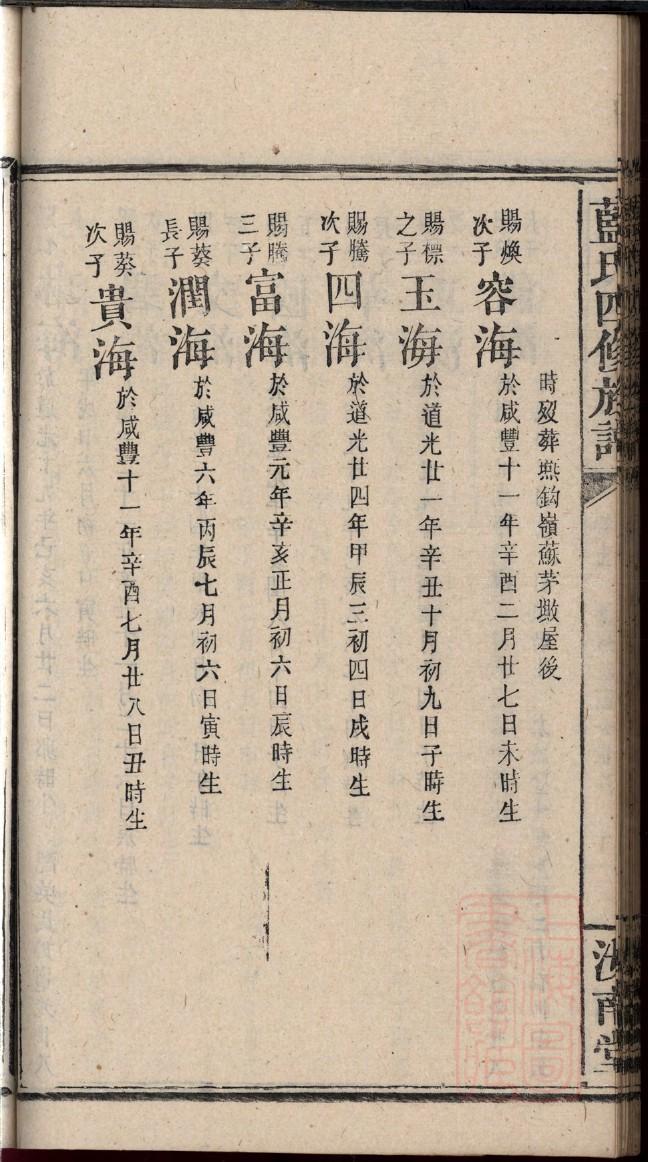 藍氏四修族譜
汝南堂
時歿葬燕鈎嶺蘇茅墩屋後
賜煥次子容海於咸豐十一年辛酉二月廿七日未時生
賜標之子玉海於道光廿一年辛丑十月初九日子時生
賜騰次子四海於道光廿四年甲辰三初四日戌時生
賜騰三子富海於咸豐元年辛亥正月初六日辰時生
賜葵長子潤海於咸豐六年丙辰七月初六日寅時生
賜葵次子貴海於咸豐十一年辛酉七月廿八日丑時生